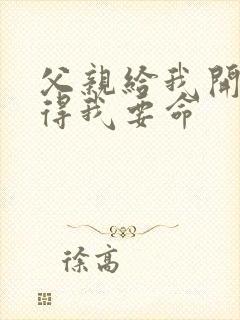 父親給我開
得我要命
徐高